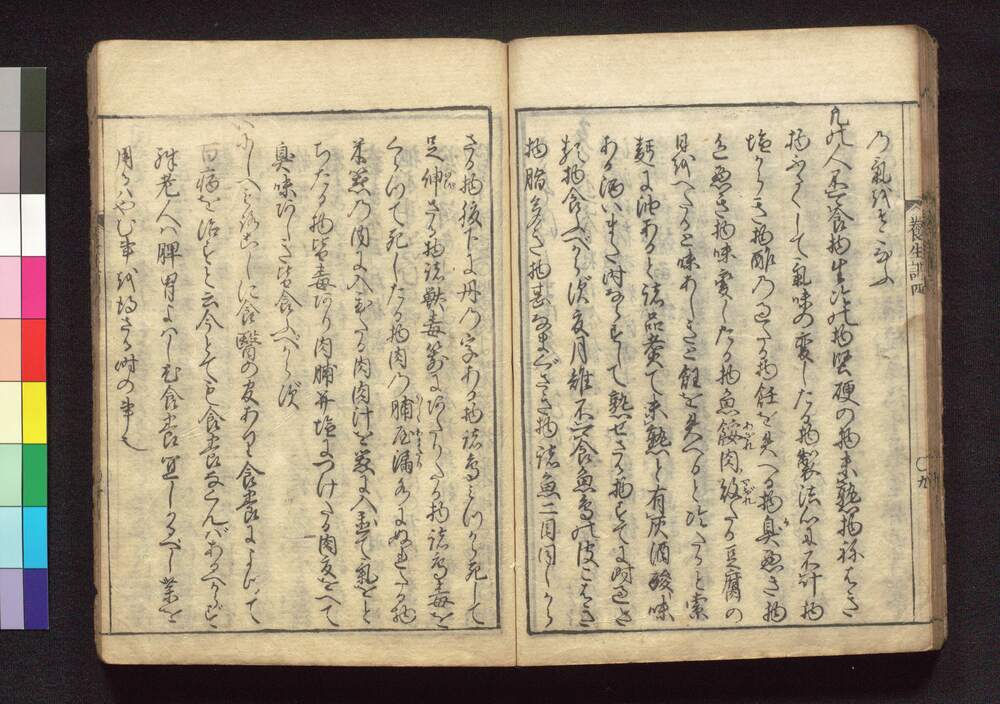 乃氣をそこなふ
凡の人不可食物生冷の物堅硬の物未熟物ねばき
物ふるくして氣味の変じたる物製法心に不叶物
塩からき物酢乃過たる物飪を失へる物臭惡き物
色惡き物味変したる物魚餒肉敗たる豆腐の
日をへたると味あしきと飪を失へると冷たると索
麪に油あると諸品煮て未熟と有灰酒酸味
ある酒いまだ時ならずして熟せざる物すでに時過た
る物食ふべからず夏月雉不可食魚鳥の皮こはき
物脂多き物甚なまぐさき物諸魚二目同じから
ざる物腹下に丹乃字ある物諸鳥みづから死して
足伸ざる物諸獣毒箭にあたりたる物諸鳥毒を
くらつて死したる物肉乃脯屋漏水にぬれたる物
米器乃内に入置たる肉肉汁を器に入置て氣をと
ぢたる物皆毒あり肉脯并塩につけたる肉夏をへて
臭味あしき皆食ふべからず
いにしへもろこしに食醫の官あり食養によつて
百病を治すと云今とても食養なくんばあるべからず
殊老人ハ脾胃よはし尤食養宜しかるべし薬を
用るハやむ事を得ざる時の事也
養生訓四